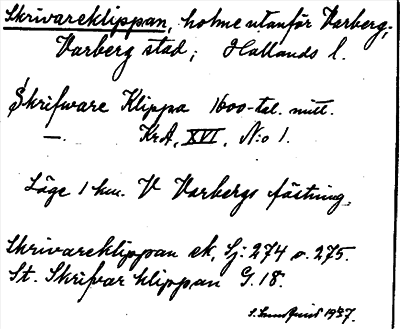 Skrivareklippan, holme utanför Varberg,
Varberg stad; Hallands l.
Skrifware Klippa 1600-tal. mitt.
—. KrA, XVI, N:o 1.
Läge 1 km. V Varbergs fästning.
Skrivareklippan ek, Sj: 274 o. 275.
St. Skrifvar klippan G. 18.
1927.